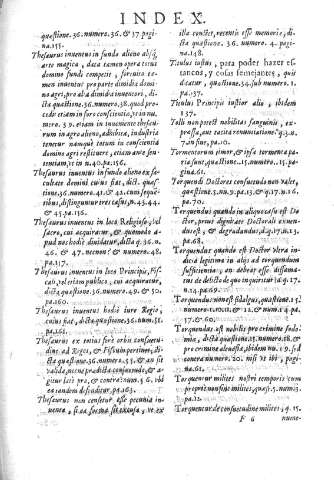 INDEX.
quæstione. 36. numero. 36. & 17. pagi
na. 155.
Thesaurus inventus in fundo alieno absq;
arte magica, data tamen opera totus
domino fundi competit, fortuito ta-
men inventus pro parte dimidia domi
no agri, pro alia dimidia inventori, di
cta quæstione. 36. numero. 38. quod pro
cedit etiam in foro conscientiæ, primo, nu
mero 39. etiam in inveniente thesau-
rum in agro alieno, adhibita, industria
tenetur namque totum in conscientia
domino agri restituere, etiam ante sen-
tentiam, in n. 40. pa. 156.
Thesaurus inventus in fundo alieno ex fa-
cultate domini cuius fiat, dict. quæs-
tione. 36. numero. 41. & 42. cum seque
tibus, distinguuntur tres casus, n. 43. 44.
& 45. pa. 156.
Thesaurus inventus in loco Religioso, vel
sacro, cui acquiratur, & quomodo a-
pud nos hodie dividatur, dicta q. 36. n.
46. & 47. necnon & numero. 48.
pa. 157.
Thesaurus inventus in loco Principis, Fis-
cali, vel etiam publico, cui acquiratur,
dicta quæstione. 36. numero. 49. & 50.
pa. 160.
Thesaurus inventus hodie iure Regio,
cuius fiat, dicta quæstione. 36. numero. 51.
pa. 161.
Thesaurus ex totius ferè orbis consuetu-
dine, ad Reges, & Fiscum pertinet, di-
cta quæstione. 36. numero. 55. & an sit
valida, nec ne prædicta consuetudo, & a-
pud
Thesaurus non censetur esse pecunia in-
illa constet, recentis esse memoriæ, di-
cta quæstione. 36. numero. 4. pagi-
na. 148.
Titulus iustus, para poder hazer es-
tancos, y cosas semejantes, quis
dicatur, quæstione. 34. sub numero. 1.
pa. 137.
Titulus Principis iustior aliis, ibidem
137.
Tolli non potest nobilitas sanguinis, ex-
pressa, aut tacita renuntiatione. q. 3. n.
7. in fine, pa. 10.
Tormentorum timor, & ipsa tormenta pa-
ria sunt, quæstione. 15. numero. 15. pa-
gina. 61.
Torquendi Doctores consuetudo non valet,
quæstione. 3. nu. 9. pa. 13. & q. 17. n. 16.
pa. 70.
Torquendus quando in aliquo casu est Do-
ctor, prius dignitate Doctorali exuendus
est, & degradandus, d. q. 17. n. 13.
pa. 68.
Torquendus quando est Doctor vtera in-
dicia legitima in aliis ad torquendum
sufficientia, an debeat esse diffama-
tus de delicto de quo inquiritur? d. q. 17.
n. 14. pa. 69.
Torquendus non est hidalgus, quæstione. 15.
numero. 1. 10. 11. & 12. & num. 14. pa-
gina. 60. & 61.
Torquendus est nobilis pro crimine sodo-
miæ, dicta quæstione. 15. num. 18. & pro
pro crimine demesta, ibidem nu. 19. sed
contra numero. 20. nisi vt ibi, pagi-
na. 61.
Torquentur milites nostri temporis cum
propriè non sint milites, quæst. 5. num. 13.
pa. 12.
Torquentur de consuetudine milites, q. 15.
F 6 nume-